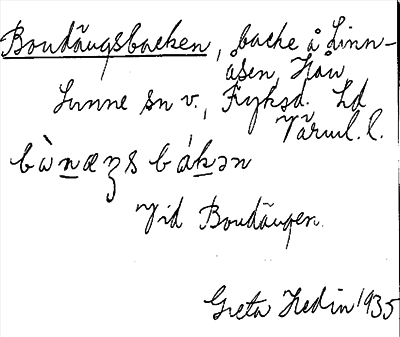 Boudängsbacken, backe å Linn-
åsen, Håu
Sunne sn v., Fryksd. hd
Värml. l.
bànæʒs bákən
Vid Boudängen.
Greta Hedin 1935